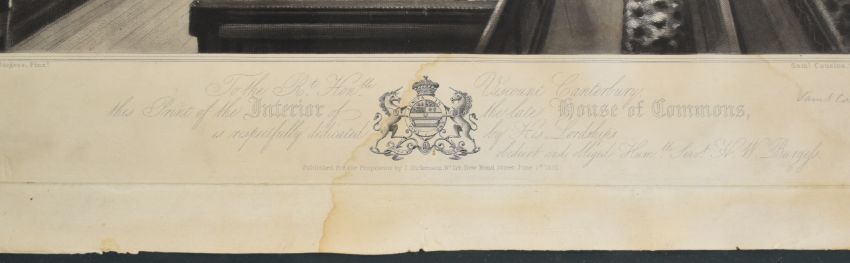 urgess, Pinxt
Saml Cousins,
To the Rt. Honble Viscount Canterbury,
this Print of the Interior of the late House of Commons,
is respectfully dedicated by His Lordships
obedient and obliged Humble Servt H. W. Burgess.
Published for the Proprietor by J. Dickenson, New Bond Street, June 1st